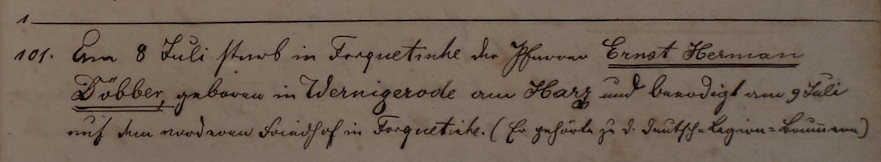 1
101. Am 8 Juli starb in Forquetinhe der Pfarrer Ernst Herman
Döbber, geboren in Wernigerode am Harz und beerdigt am 9 Juli
auf dem vorderen Friedhof in Forquetinhe. (Er gehörte zu d. deutsch=Legion=Brummern)